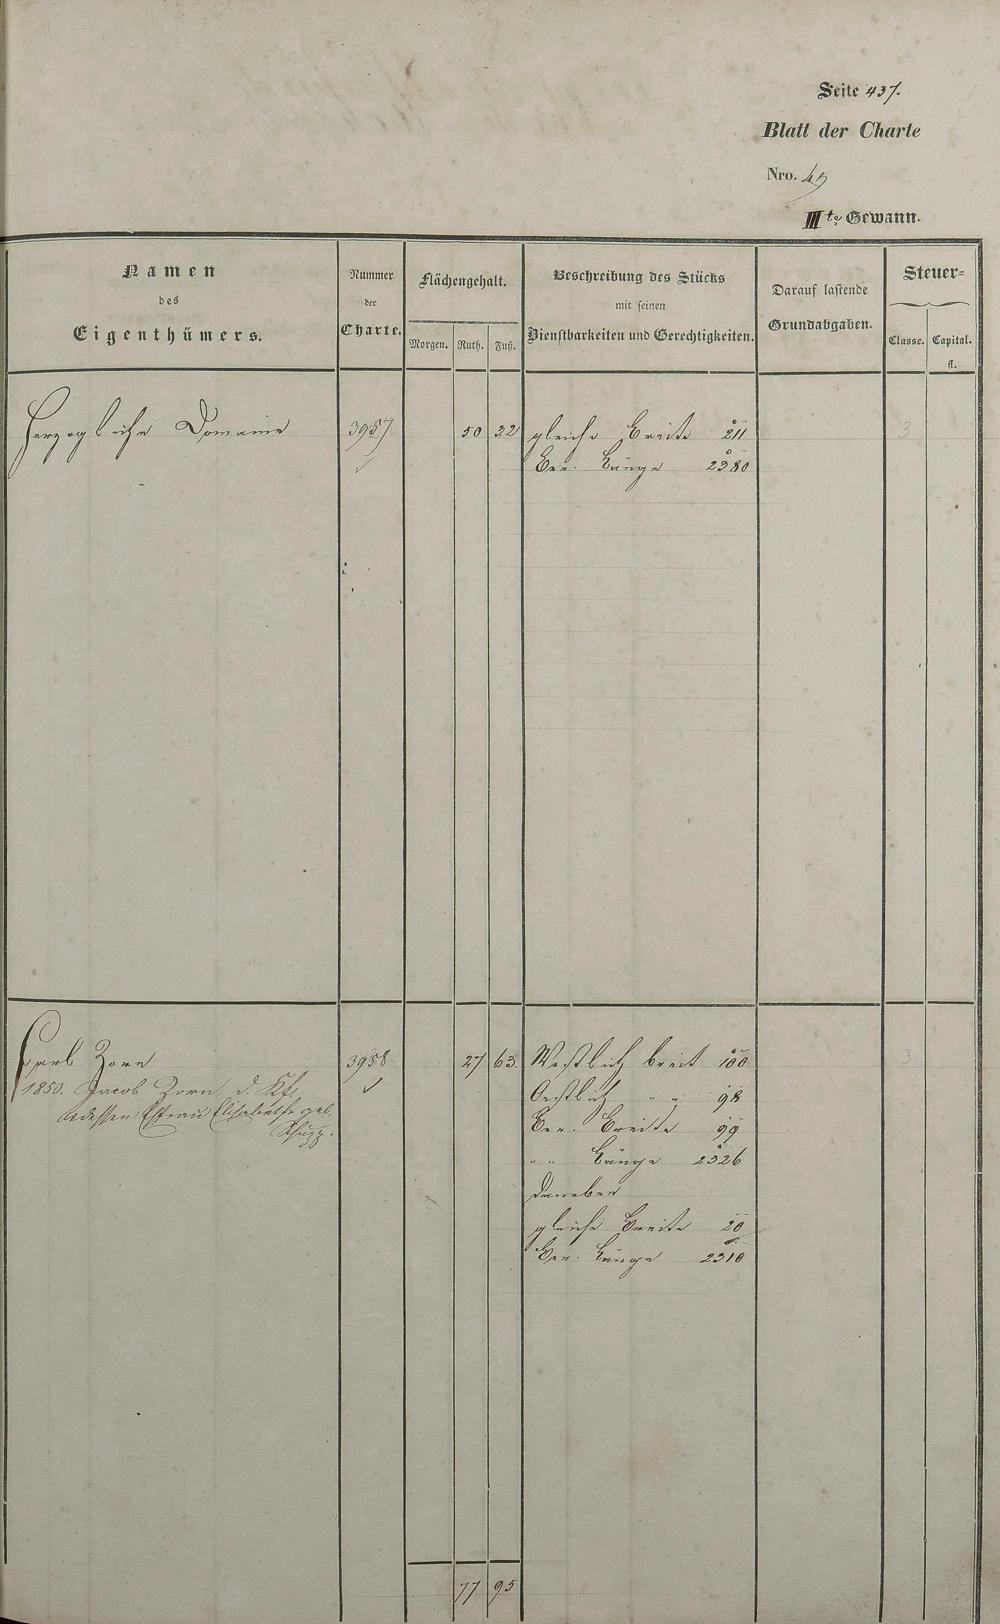 Seite 437.
Blatt der Charte
Nro. 49
IIIte Gewann.
Namen
des
Eigenthümers.
Nummer
der
Charte.
Flächengehalt.
Morgen. Ruth. Fuß.
Beschreibung des Stücks
mit seinen
Dienstbarkeiten und Gerechtigkeiten.
Darauf lastende
Grundabgaben.
Steuer-
Classe. Capital.
fl.
Herzogliche Domaine 3957 50 32 gleiche Breite 211 3
Ber. Länge 2380
Carl Zorn 3958 27 63. Westlich breit 100 3
1850. Jacob Zorn d. Kf. Oestlich " " 98
u dessen Ehfrau Elisabethe geb. Ber. Breite 99
Schupp.
" " Länge 2326
daneben
gleiche Breite 20
Ber. Länge 2310
77 95